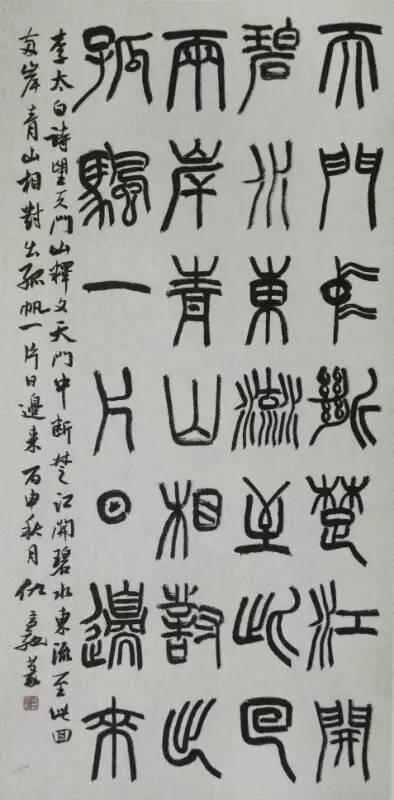 天門中斷楚江開
碧水東流至此回
兩岸青山相對出
孤颿一片日邊來
李太白詩望天門山釋文天門中断楚江開碧水東流至此回
兩岸青山相對出孤帆一片日邊来丙申秋月